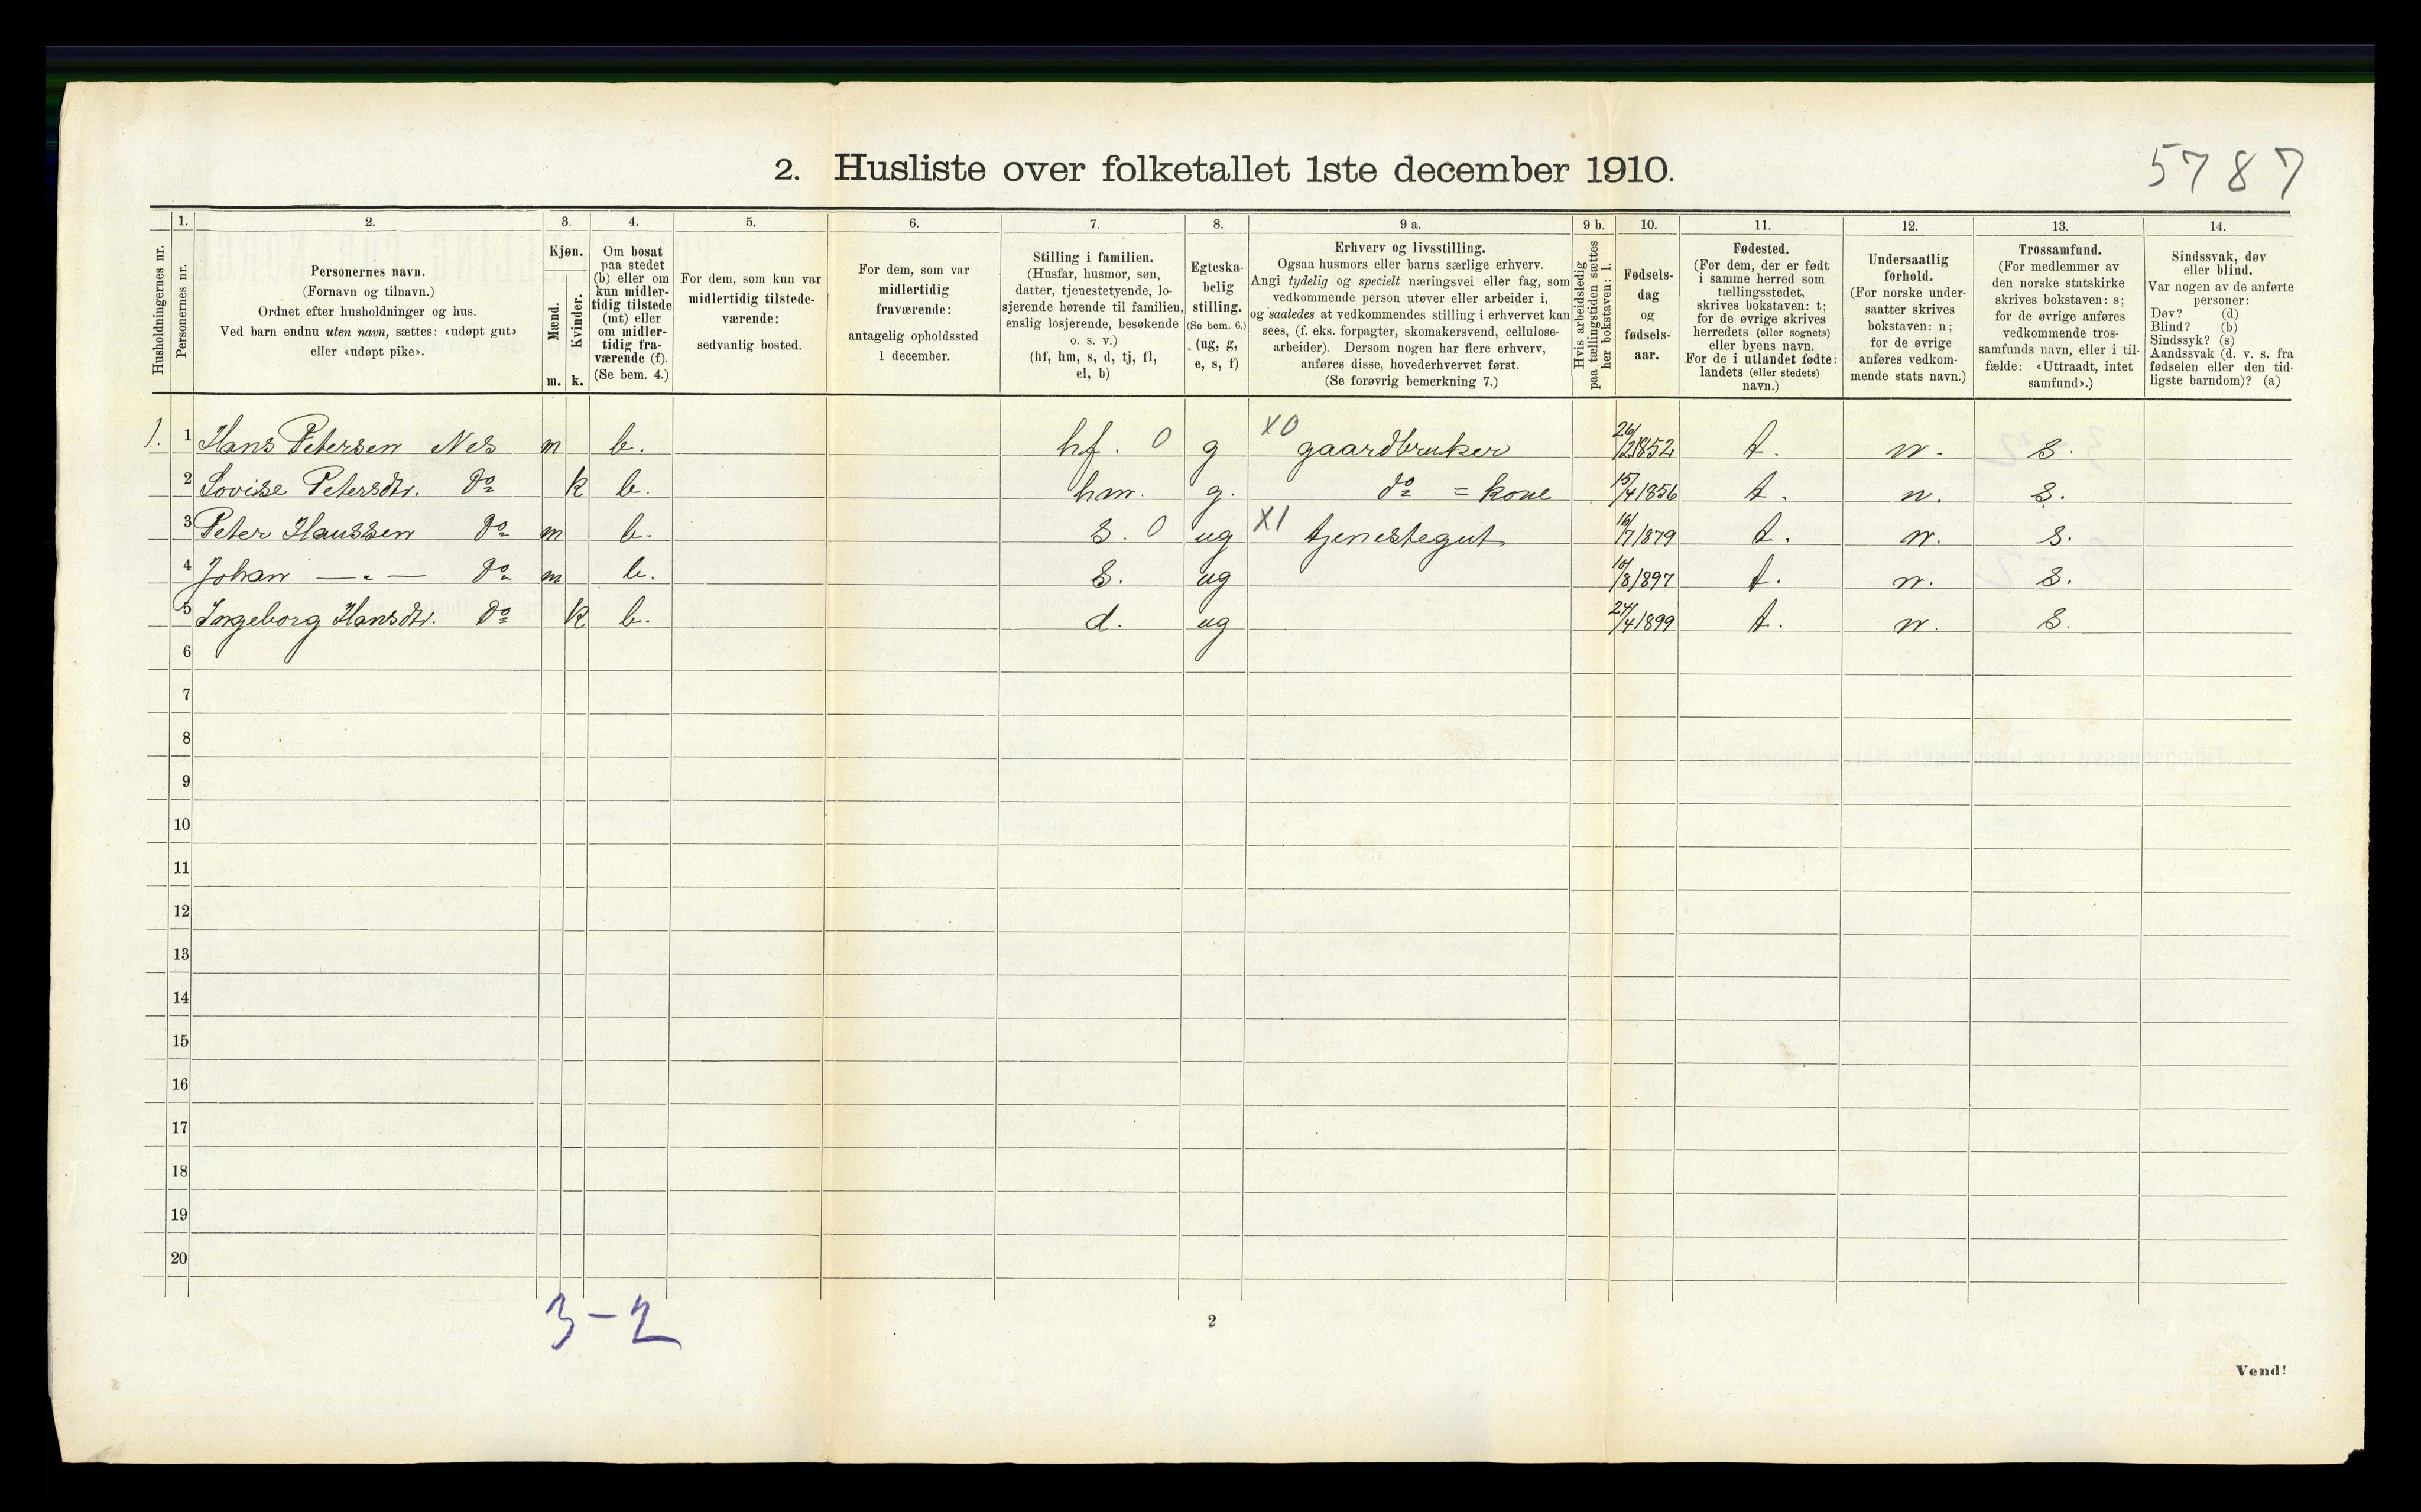 5787
2. Husliste over folketallet 1ste december 1910.
Husholdningernes nr.
1. Personernes nr.
2. Personernes navn.
(Fornavn og tilnavn.)
Ordnet efter husholdninger og hus.
Ved barn endnu uten navn, sættes: «udøpt gut»
eller «udøpt pike».
3. Kjøn.
Mænd. m.
Kvinder. k.
4. Om bosat
paa stedet
(b) eller om
kun midler-
tidig tilstede
(mt) eller
om midler-
tidig fra-
værende (f).
(Se bem. 4.)
5. For dem, som kun var
midlertidig tilstede-
værende:
sedvanlig bosted.
6. For dem, som var
midlertidig
fraværende:
antagelig opholdssted
1 december.
7. Stilling i familien.
(Husfar, husmor, søn,
datter, tjenestetyende, lo-
sjerende hørende til familien,
enslig losjerende, besøkende
o. s. v.)
(hf, hm, s, d, tj, fl,
el, b)
8. Egteska-
belig
stilling.
(Se bem. 6.)
(ug, g,
e, s, f)
9 a. Erhverv og livsstilling.
Ogsaa husmors eller barns særlige erhverv.
Angi tydelig og specielt næringsvei eller fag, som
vedkommende person utøver eller arbeider i,
og saaledes at vedkommendes stilling i erhvervet kan
sees, (f. eks. forpagter, skomakersvend, cellulose-
arbeider). Dersom nogen har flere erhverv,
anføres disse, hovederhvervet først.
(Se forøvrig bemerkning 7.)
9 b. Hvis arbeidsledig
paa tællingstiden sættes
her bokstaven: l.
10. Fødsels-
dag
og
fødsels-
aar.
11. Fødested.
(For dem, der er født
i samme herred som
tællingsstedet,
skrives bokstaven: t;
for de øvrige skrives
herredets (eller sognets)
eller byens navn.
For de i utlandet fødte:
landets (eller stedets)
navn.)
12. Undersaatlig
forhold.
(For norske under-
saatter skrives
bokstaven: n;
for de øvrige
anføres vedkom-
mende stats navn.)
13. Trossamfund.
(For medlemmer av
den norske statskirke
skrives bokstaven: s;
for de øvrige anføres
vedkommende tros-
samfunds navn, eller i til-
fælde: «Uttraadt, intet
samfund».)
14. Sindssvak, døv
eller blind.
Var nogen av de anførte
personer:
Døv? (d)
Blind? (b)
Sindssyk? (s)
Aandssvak (d. v. s. fra
fødselen eller den tid-
ligste barndom)? (a)
1. 1 Hans Petersen Nes m b. hf. 0 g X0 gaardbruker 26/2 1852 t. n. s.
2 Lovise Petersdtr. do k b. hm. g. do = kone 15/4 1856 t. n. s.
3 Peter Hanssen do m b. s. 0 ug X1 tjenestegut 16/7 1879 t. n. s.
4 Johan — „ — do m b. s. ug 10/8 1897 t. n. s.
5 Ingeborg Hansdtr. do k b. d. ug 24/4 1899 t. n. s.
6
7
8
9
10
11
12
13
14
15
16
17
18
19
20
3 - 2
2
Vend!